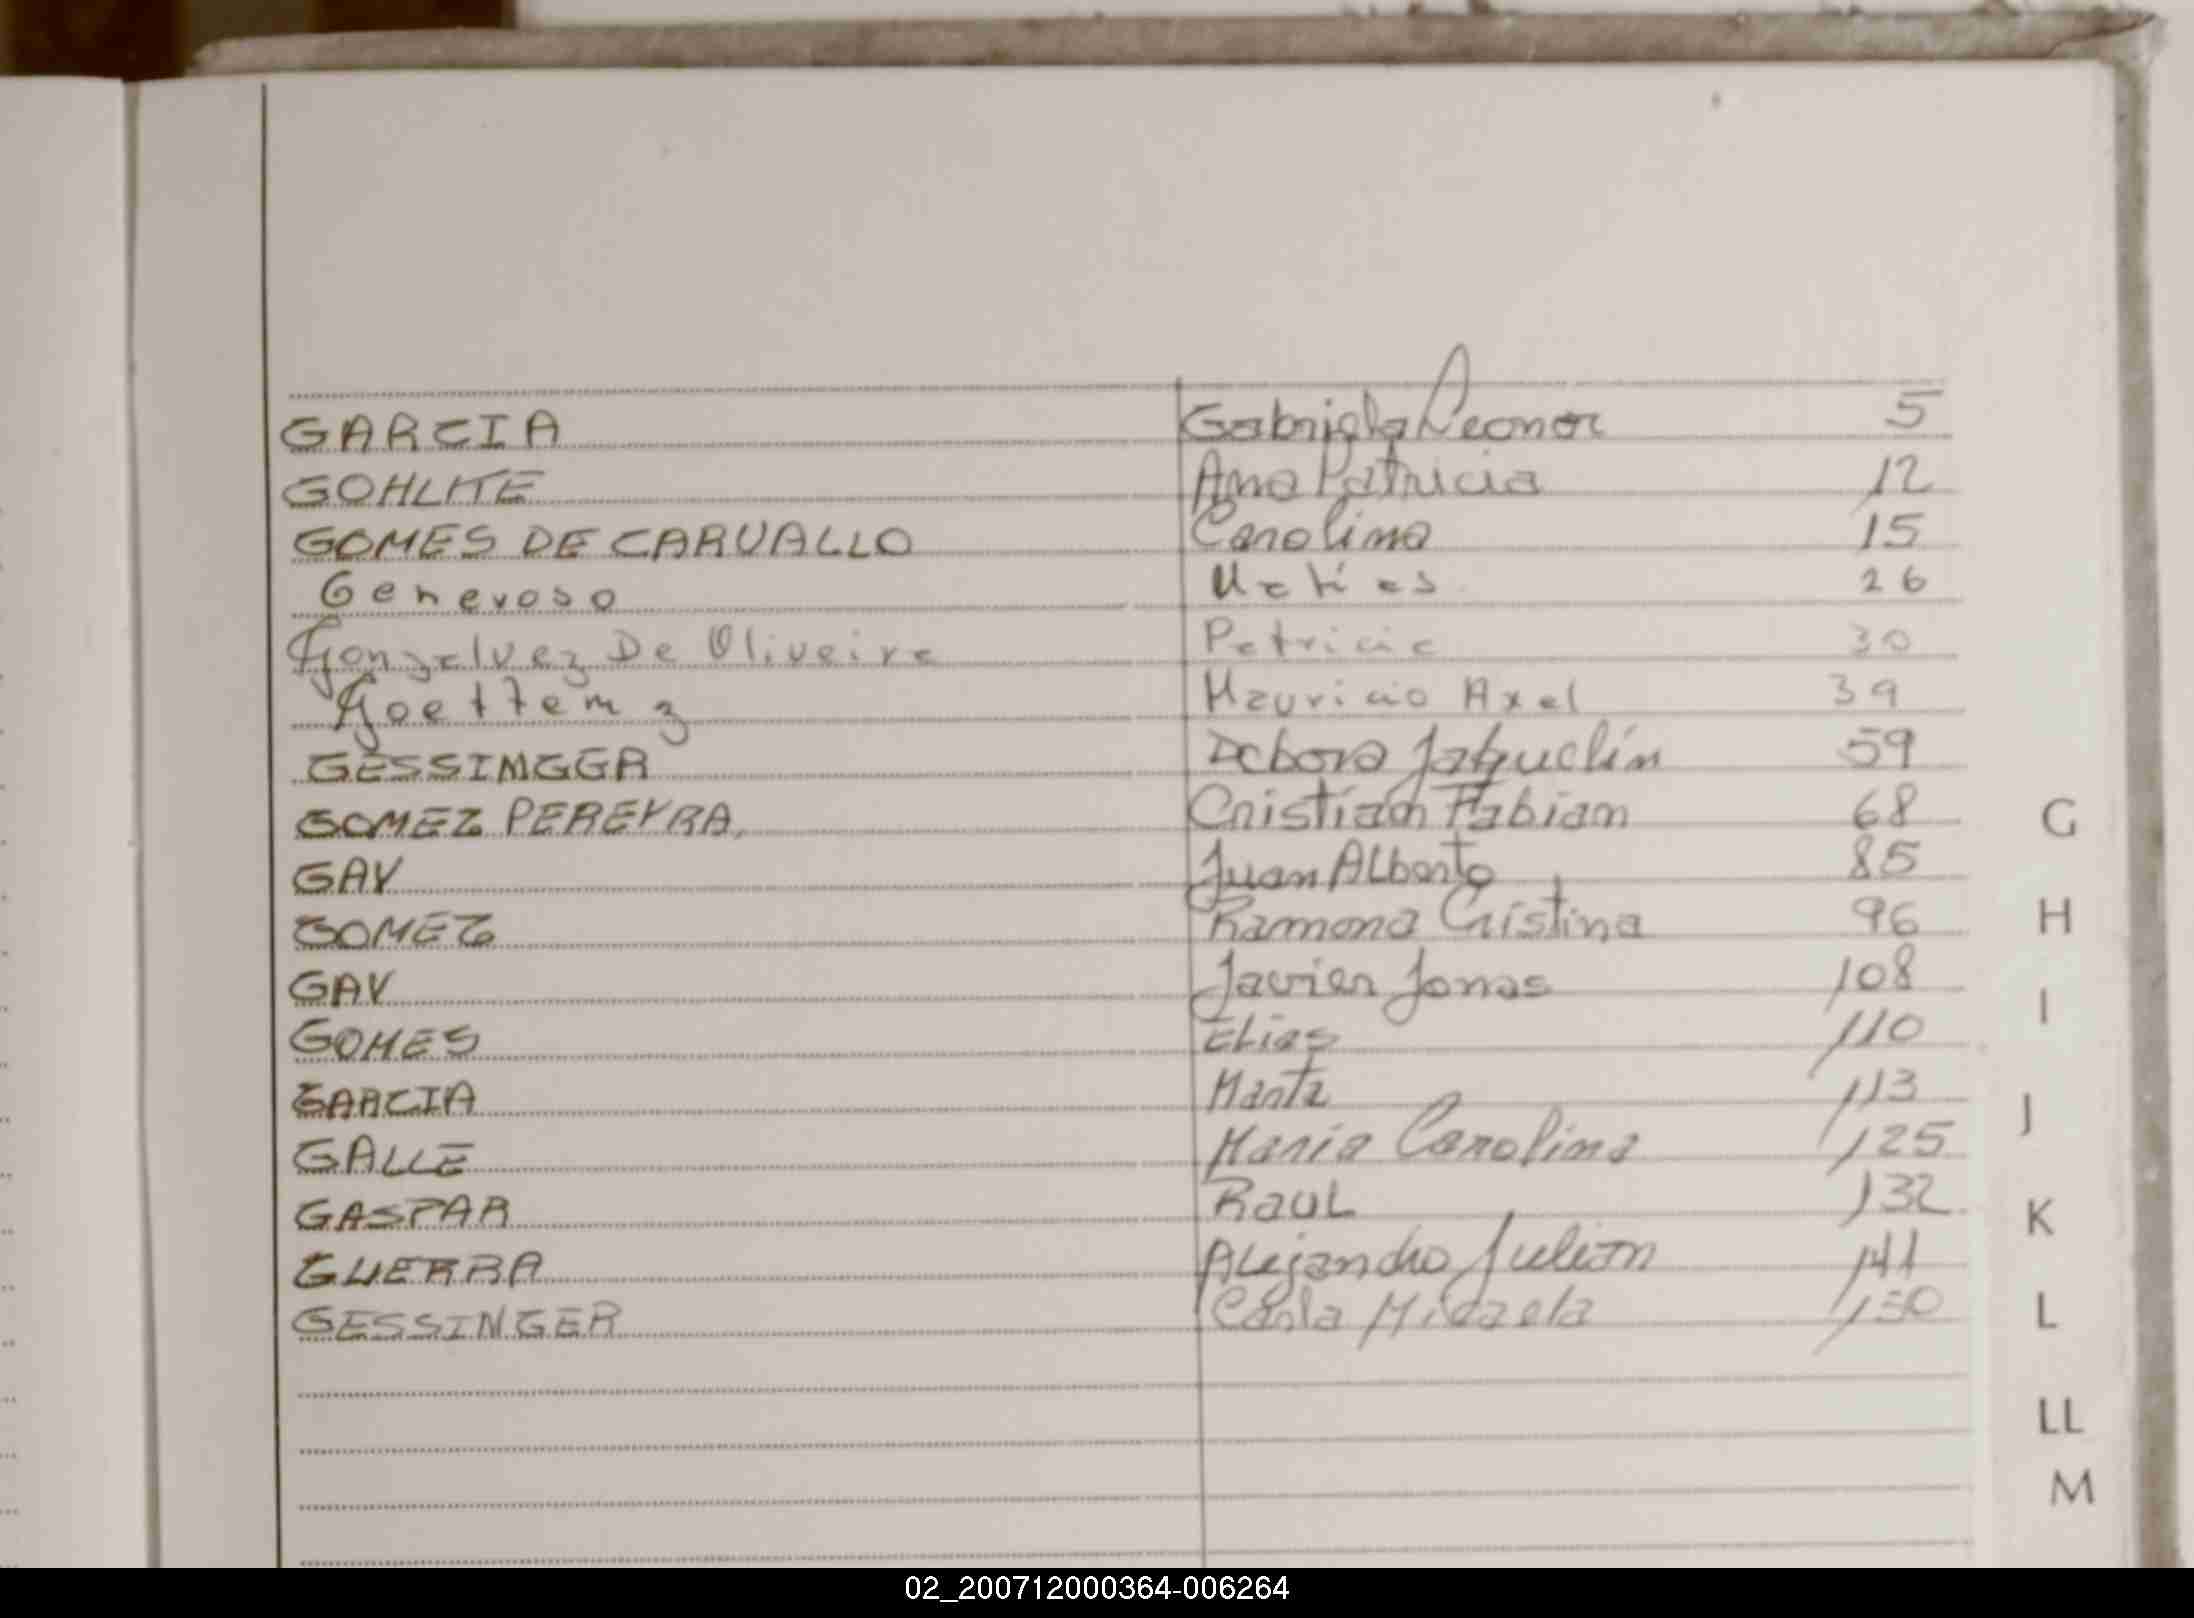 GARCIA Gabriela Leonor 5
GOHLKE Ana Patricia 12
GOMES DE CARVALLO Carolina 15
Generoso Matias 26
Gonzalvez De Oliveira Patricia 30
Goettemz Mauricio Axel 39
GESSINGER Debora Jaquelin 59
GOMEZ PEREYRA, Cristian Fabian 68
GAY Juan ALberto 85
GOMEZ Ramona Cristina 96
GAY Javier Jonas 108
GOMES ELias 110
GARCIA Marta 113
GALLE Maria Carolina 125
GASPAR RauL 132
GUERRA ALejandro Julian 141
GESSINGER Carla Micaela 150
G
H
I
J
K
L
LL
M
02_200712000364-006264